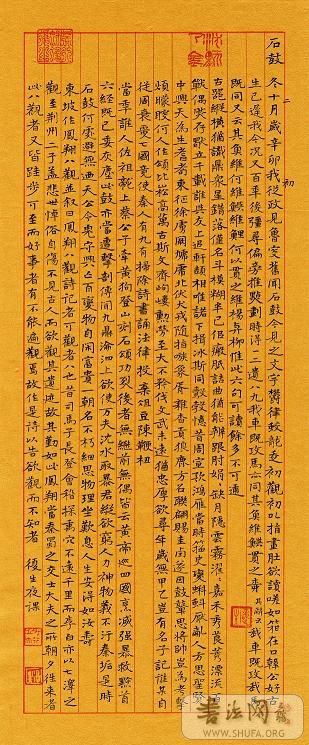 石鼓
冬十二月歲辛卯我初從政見魯叟舊聞石鼓今見之文字鬱律蛟龍走初觀初以指畫肚欲讀嗟如箝在口韓公好古
生已遲我今況又百年後彊尋偏旁推點劃時得一二遺八九我車既攻馬亦同其魚維鱮貫之柳其詞云我車既攻我馬
既同又云其魚維何維鱮維鯉何以貫之維楊與柳惟此六句可讀餘多不可通
古器縱橫猶識鼎眾星錯落僅名斗模糊半已似瘢胝詰曲猶能辨跟肘娟娟缺月隱雲霧濯濯嘉禾秀莨莠漂流百
戰偶然存獨立千載誰與友上追軒頡相唯諾下揖冰斯同鷇㝅憶昔周宣歌鴻雁當時籀史變蝌蚪厭亂人方思聖賢
中興天為生耆耇東征徐虜闞虓虎北伐犬戎隨指嗾象胥雜沓貢狼鹿方召聯翩賜圭卣遂因鼓鼙思將帥豈為考擊
煩矇瞍何人作頌比崧高萬古斯文齊岣嶁勳勞至大不矜伐文武未遠猶忠厚欲尋年歲無甲乙豈有名子記誰某自
從周衰更七國竟使秦人有九有掃除詩書誦法律投棄俎豆陳鞭杻
當年誰人佐祖龍上蔡公子牽黃狗登山刻石頌功烈後者無繼前無偶皆云黃帝巡四國烹滅强暴救黔首
六經既已委灰塵此鼓亦當遭擊剖傳聞九鼎淪泗上欲使萬夫沈水取暴君縱欲窮人力神物義不汙秦垢是時
石鼓何處避無迺天公令鬼守興亡百變物自閒富貴一朝名不朽細思物理坐歎息人生安得如汝壽
東坡作鳳翔八觀並叙曰鳳翔八觀詩記可觀者八也昔司馬子長登會稽探禹穴不遠千里而李白亦以七澤之
觀至荊州二子蓋悲世悼俗自傷不見古人而欲觀其遺迹故其勤如此鳳翔當秦蜀之交士大夫之所朝夕往來者
此八觀者又皆跬步可至而好事者有不能遍觀焉故作是詩以告欲觀而不知者 復生夜課
书法网
www.shufa.org